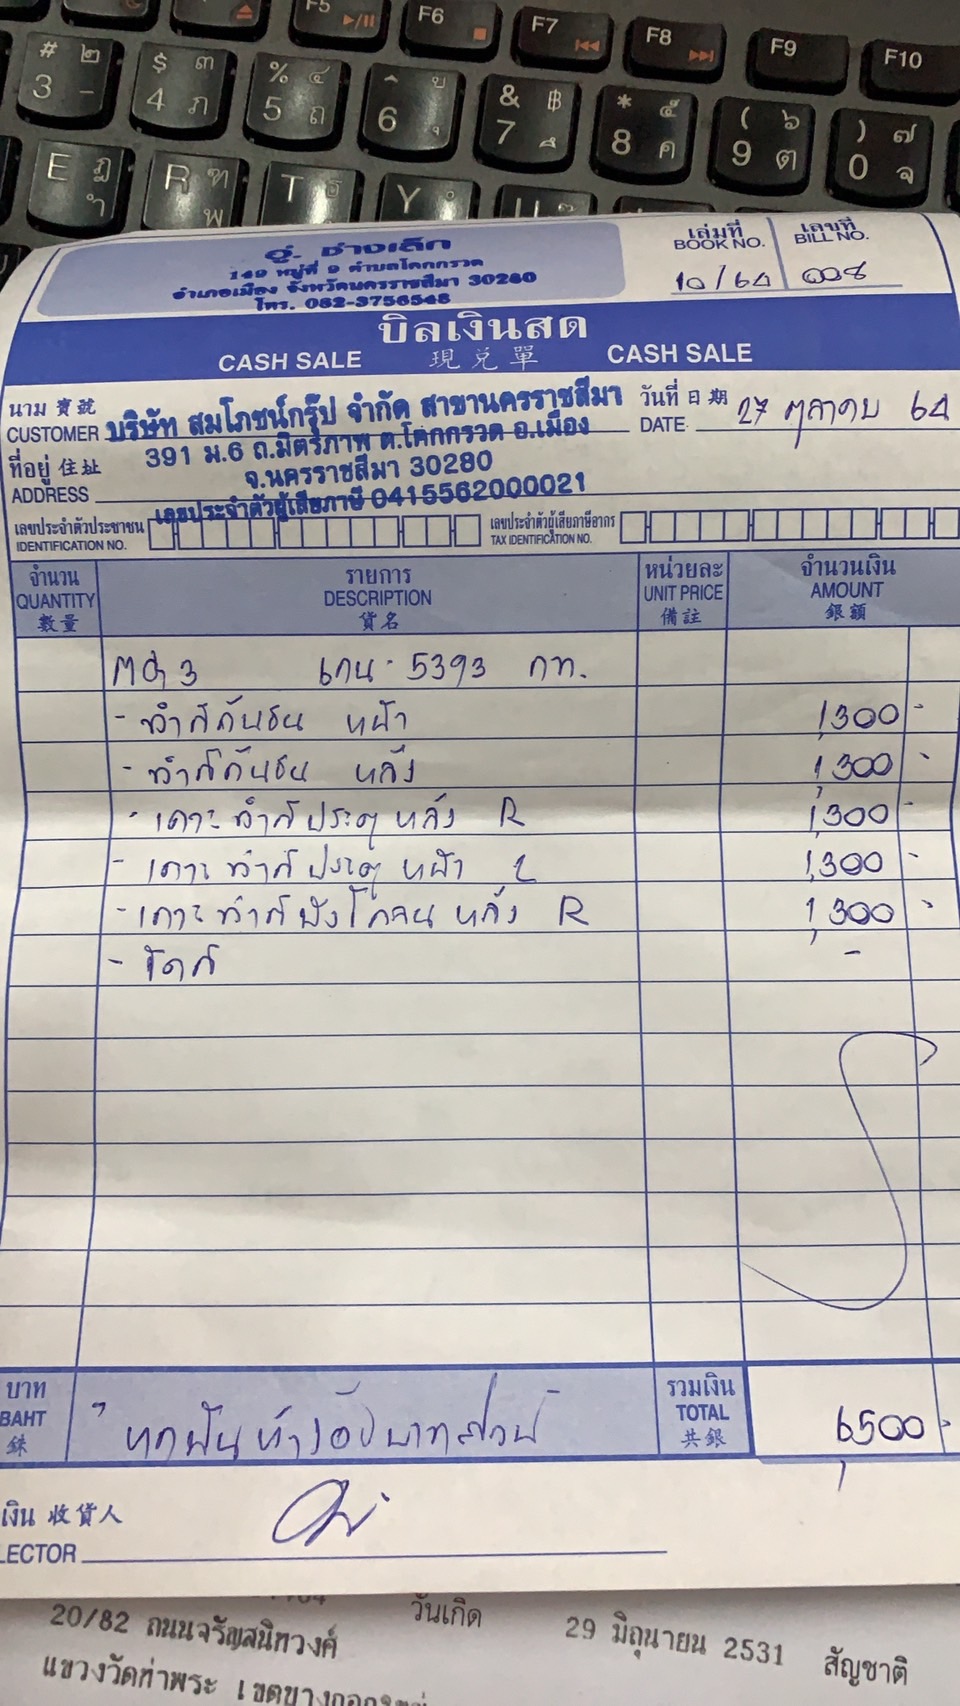 F5
F6
F7
F8
F9
F10
# ๒
3 -
$ ๓
4 ภ
% ๔
5 ถ
^ ู
6 ุ
& ฿
7 ึ
* ๕
8 ค
( ๖
9 ต
) ๗
0 จ
E ฎ
ำ
R ฑ
พ
T ธ
Y
U
อู่ ช่างเล็ก
149 หมู่ที่ 9 ตำบลโคกกรวด
อำเภอเมือง จังหวัดนครราชสีมา 30280
โทร. 082-3756548
เล่มที่
BOOK NO.
10/64
เลขที่
BILL NO.
008
บิลเงินสด
CASH SALE 現兌單 CASH SALE
นาม 寶號
CUSTOMER บริษัท สมโภชน์กรุ๊ป จำกัด สาขานครราชสีมา
วันที่ 日期
DATE. 27 ตุลาคม 64
ที่อยู่ 住址
ADDRESS
391 ม.6 ถ.มิตรภาพ ต.โคกกรวด อ.เมือง
จ.นครราชสีมา 30280
เลขประจำตัวผู้เสียภาษี 0415562000021
เลขประจำตัวประชาชน
IDENTIFICATION NO.
เลขประจำตัวผู้เสียภาษีอากร
TAX IDENTIFICATION NO.
จำนวน
QUANTITY
數量
รายการ
DESCRIPTION
貨名
หน่วยละ
UNIT PRICE
備註
จำนวนเงิน
AMOUNT
銀額
MG 3 5393 กท.
- ทำสีกันชน หน้า 1,300 -
- ทำสีกันชน หลัง 1,300 -
- เคาะทำสีประตูหลัง R 1,300 -
- เคาะทำสีประตูหน้า L 1,300 -
- เคาะทำสีบังโคลนหลัง R 1,300 -
- ขัดสี -
บาท
BAHT
銖
หกพันห้าร้อยบาทถ้วน
รวมเงิน
TOTAL
共銀
6,500 -
เงิน 收貨人
LECTOR
วันเกิด 29 มิถุนายน 2531 สัญชาติ
20/82 ถนนจรัญสนิทวงศ์
แขวงวัดท่าพระ เขตบางกอกใหญ่